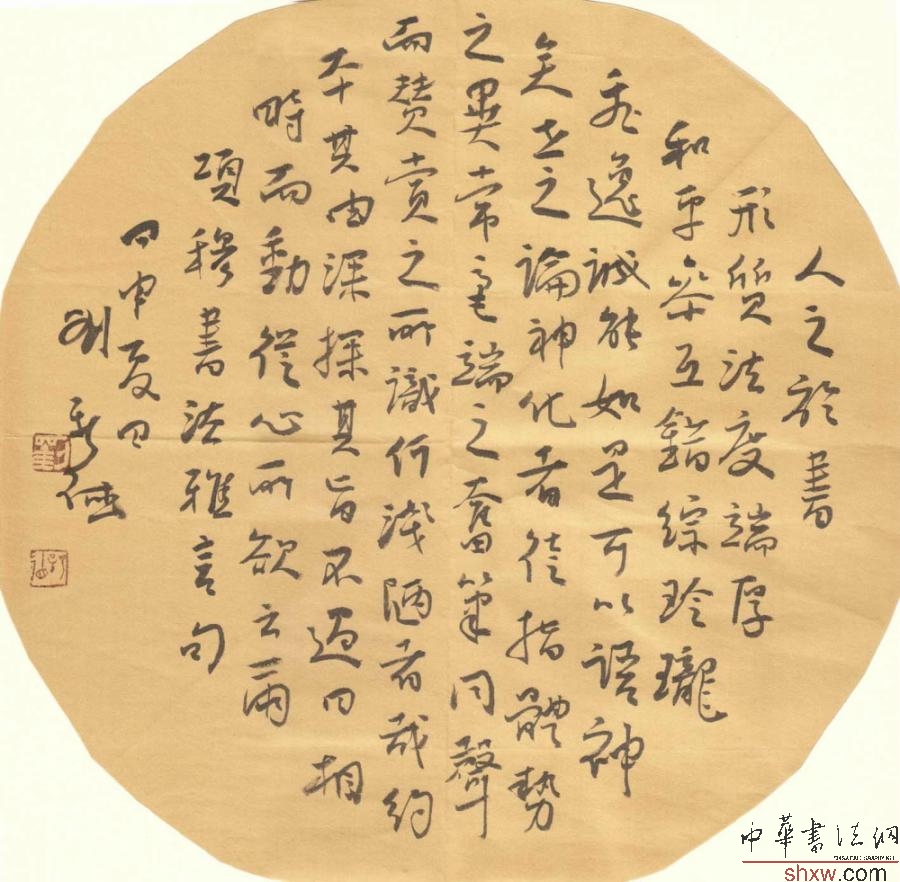 人之於書
形質法度端厚
和平參互錯綜玲瓏
飛逸誠能如是可以語神
矣世之論神化者徒指體勢
之異常毫端之奮筆同聲
而赞賞之所識何淺陋者哉約
本其由深探其旨不過曰相
時而動從心所欲云爾
項穆書法雅言句
申夏日
劉
中華書法網
shxw.com